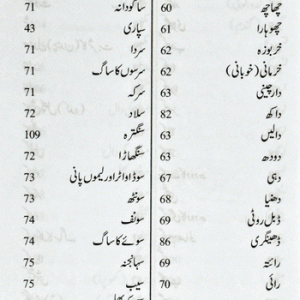 چھاچھ 60
چھوہارا 61
خربوزہ 62
خرمانی (خوبانی) 62
دارچینی 63
داکھ 82
دالیں 63
دودھ 63
دہی 67
دھنیا 68
ڈبل روٹی 69
ڈھینگری 86
رائتہ 69
رائی 70
ساگودانہ 71
سپاری 43
سردا 71
سرسوں کا ساگ 71
سرکہ 71
سلاد 72
سنگترہ 109
سنگھاڑا 72
سوڈا واٹر اور لیموں پانی 73
سونٹھ 73
سونف 74
سوئے کا ساگ 74
سہانجنہ 75
سیب 75